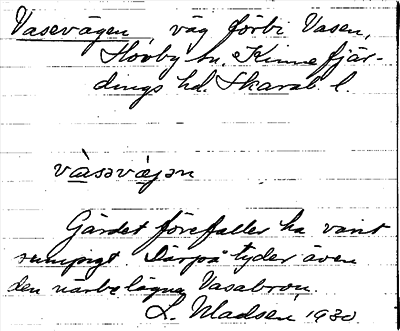 Vasevägen, väg förbi Vasen,
Hovby sn, Kinnefjär-
dings hd. Skarab. l.
vàsəvägən
Gärdet förefaller ha varit
sumpigt. Därpå tyder även
den närbelägna Vasabron.
L. Madsén 1930.